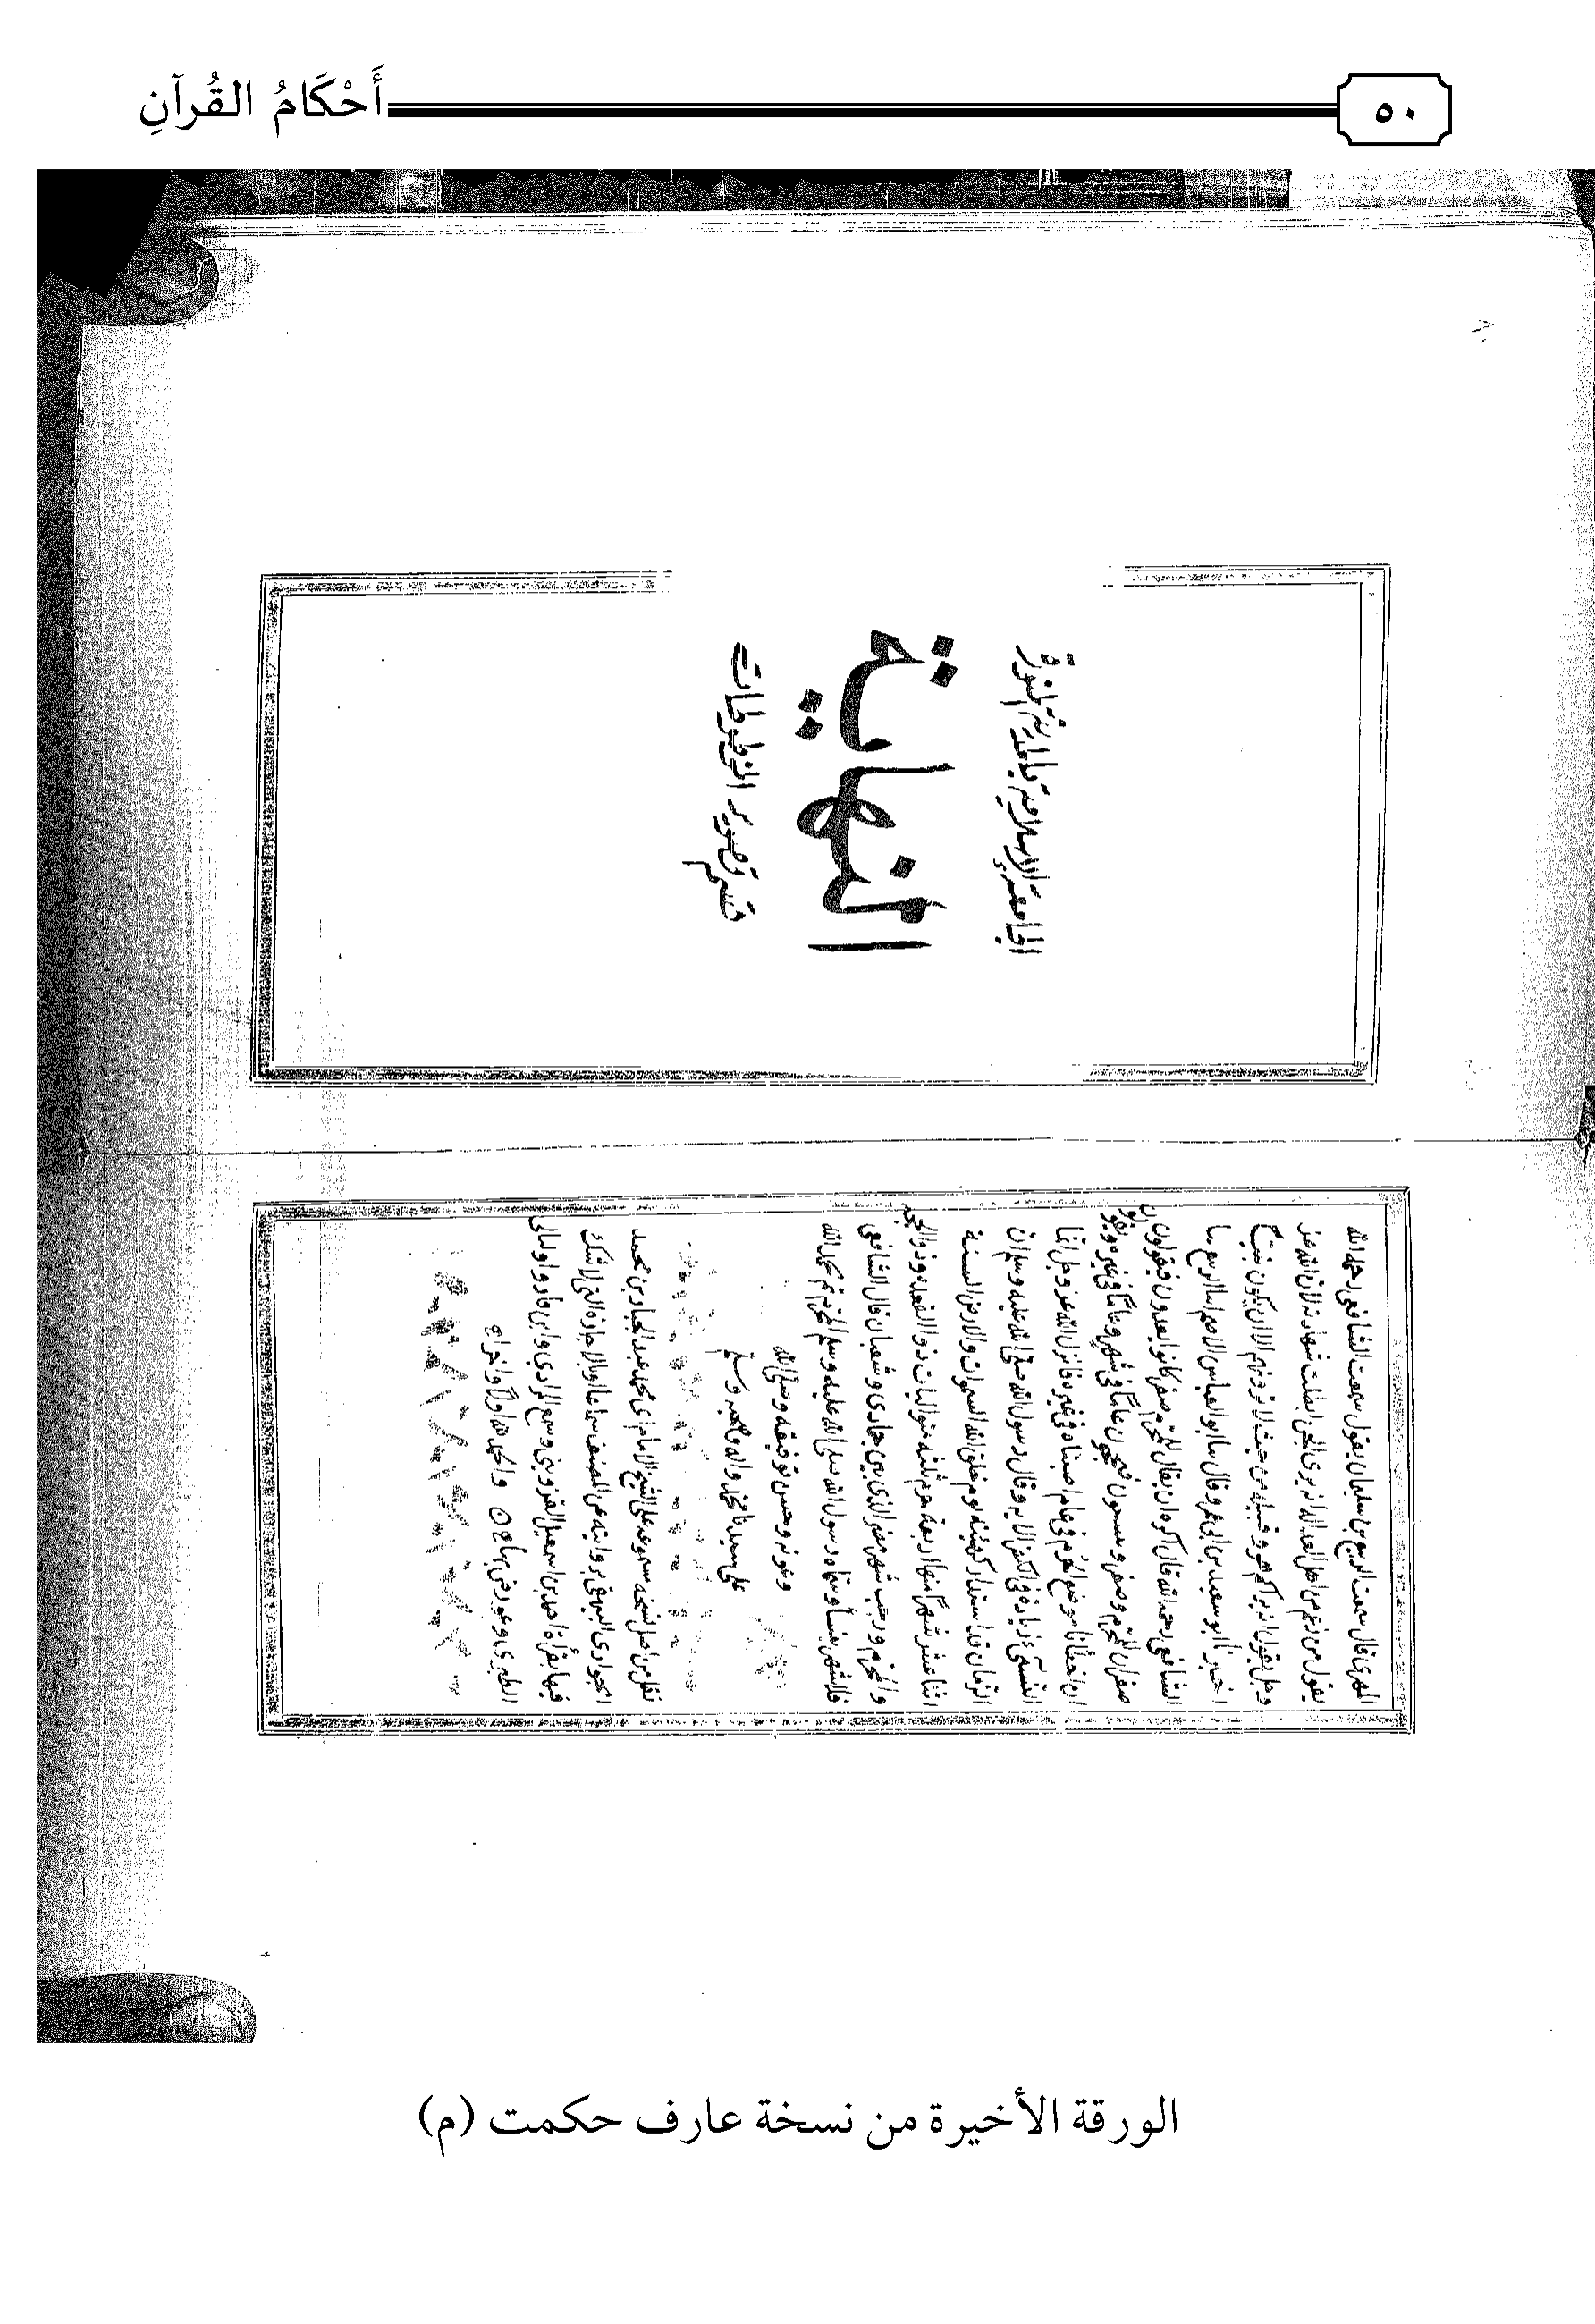 ٥٠
أَحْكَامُ القُرآنِ
الجامعة الإسلامية بالمدينة المنورة
النهاية
قسم تصوير المخطوطات
المهرى قال سمعت الربيع بن سليمان يقول سمعت الشافعى رحمه الله
يقول من زعم من اهل العدالة انه يرى الجن ابطلت شهادته لان الله عز
وجل يقول انه يراكم هو وقبيله من حيث لا ترونهم الا ان يكون نبيا
اخبرنا ابو سعيد بن ابى عمرو قال نا ابو العباس الاصم انا الربيع نا
الشافعى رحمه الله قال اكره ان يقال للمحرم صفر كانوا يعدون فيقولون
صفران للمحرم وصفر وينسئون فيحجون عاما فى شهر وعاما فى غيره ويقولون
ان اخطأنا موضع المحرم فى عام اصبناه فى غيره فانزل الله عز وجل انما
النسىء زيادة فى الكفر الاية وقال رسول الله صلى الله عليه وسلم ان
الزمان قد استدار كهيئته يوم خلق الله السموات والارض السنة
اثنا عشر شهرا منها اربعة حرم ثلثة متواليات ذو القعدة وذو الحجة
والمحرم ورجب شهر مضر الذى بين جمادى وشعبان قال الشافعى
فلا شهر ينسأ وسماه رسول الله صلى الله عليه وسلم المحرم تم بحمد الله
وعونه وحسن توفيقه وصلى الله
على سيدنا محمد واله وصحبه وسلم
نقل من اصل نسخه مسموعه على الشيخ الامام ابى محمد عبد الجبار بن محمد
الجوارى البيهقى بروايته عن المصنف سماعا او بالاجازة التى لا شك
فيها بقرأة احمد بن اسمعيل القزوينى وسمع المرادى وابن
الطبرى وعورض بها والحمد لله اولا واخرا
الورقة الأخيرة من نسخة عارف حكمت (م)